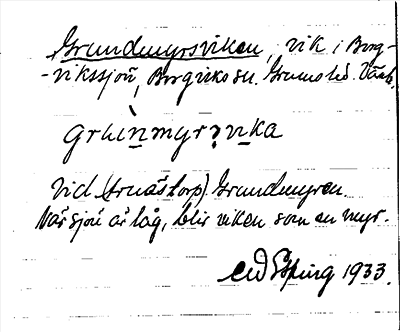 Grundmyrsviken, vik i Borg-
-vikssjön, Borgviks sn. Grums hd. Värml.
gruǹmyrʂvika
Vid (Arnästorp) Grundmyren.
När sjön är låg, blir viken som en myr.
1933.